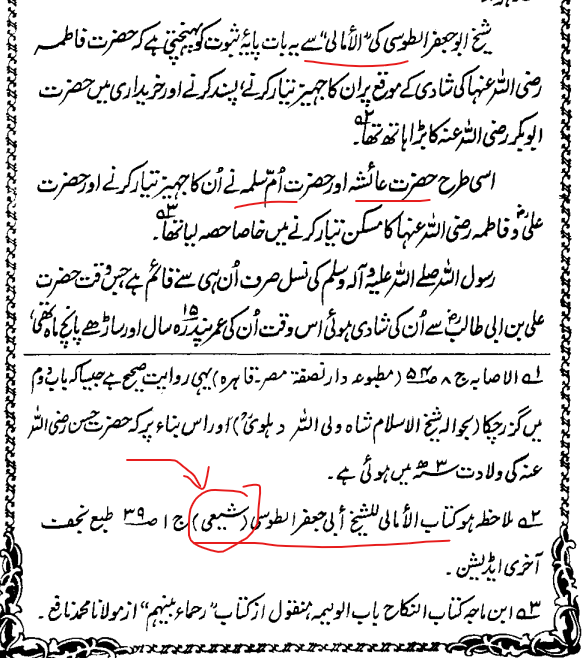 شیخ ابو جعفر الطوسی کی "الأمالی" سے یہ بات پایۂ ثبوت کو پہنچتی ہے کہ حضرت فاطمہ
رضی اللہ عنہا کی شادی کے موقع پر ان کا جہیز تیار کرنے، پسند کرنے اور خریداری میں حضرت
ابوبکر رضی اللہ عنہ کا بڑا ہاتھ تھا۔ ۲ے
اسی طرح حضرت عائشہ اور حضرت اُم سلمہ نے اُن کا جہیز تیار کرنے اور حضرت
علیؓ و فاطمہ رضی اللہ عنہا کا مسکن تیار کرنے میں خاصا حصہ لیا تھا۔ ۳ے
رسول اللہ صلے اللہ علیہ وآلہ وسلم کی نسل صرف اُن ہی سے قائم ہے جس وقت حضرت
علی بن ابی طالبؓ سے اُن کی شادی ہوئی اس وقت اُن کی عمر پندرہ ۱۵ سال اور ساڑھے پانچ ماہ تھی،
۱ے الاصابہ ج ۸ ص۵۴ (مطبوعہ دار نہضۃ مصر۔ قاہرہ) یہی روایت صحیح ہے جیسا کہ باب دوم
میں گزر چکا (بحوالہ شیخ الاسلام شاہ ولی اللہ دہلویؒ) اور اس بناء پر کہ حضرت حسن رضی اللہ
عنہ کی ولادت ۳ھ میں ہوئی ہے۔
۲ے ملاحظہ ہو کتاب الأمالی للشیخ أبی جعفر الطوسی (شیعی) ج ۱ ص۳۹ طبع نجف
آخری ایڈیشن۔
۳ے ابن ماجہ کتاب النکاح باب الولیمہ منقول از کتاب "رحماء بینہم" از مولانا محمد نافع۔